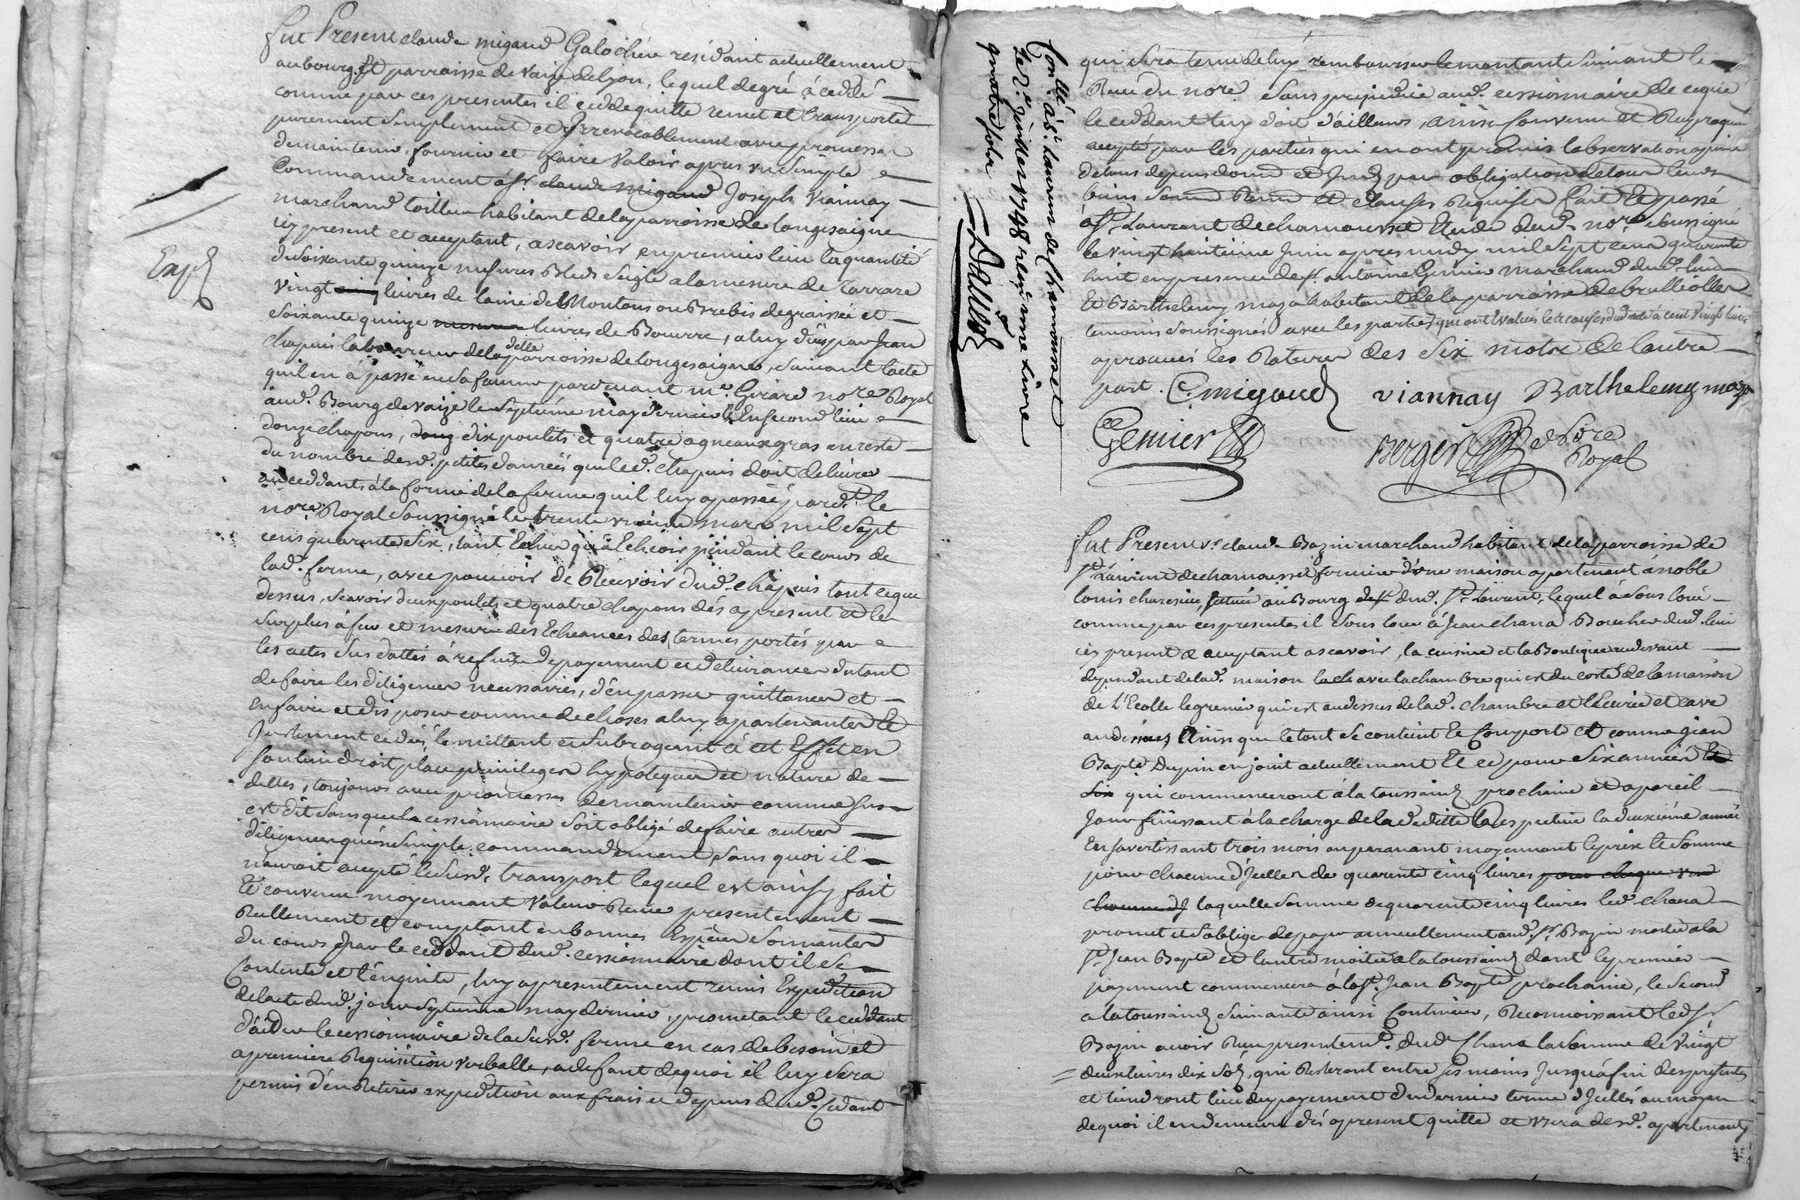 fut Present claude migaud Galochier residant actuellement
au bourg et parroisse de vaize de lyon, lequel de gré à ceddé
comme par ces presentes il cedde quitte remet et transporte
purement simplement et Irrevocablement avec promesse
de maintenir, fournir et faire valoir apres un simple
Commandement à Sr claude Migaud Joseph viannay
marchand toillier habitant de la parroisse de longesaigne
icy present et acceptant, ascavoir en premier lieu la quantité
de soixante quinze mesures Bled seigle a la mesure de tarrare
vingt livres de laine de Moutons ou Brebis degraissée et
soixante quinze livres de Beurre, a luy dües par Jean
chapuis laboureur de la ditte parroisse de longesaigne, suivant lacte
quil en à passé en sa faveur pardevant me. Girard nore Royal
aud. Bourg de vaize le septième may dernier Et En second lieu
douze chapons, dix poulets et quatre agneaux gras en reste
du nombre des petites danrées que led. chapuis doit delivrer
au ceddant à la forme de la ferme quil luy a passée pardt. le
nore Royal soussigné le trente mars mil sept
cens quarente six, tant Echeu qu'à Echeoir pendant le cours de
lad. ferme, avec pouvoir de Recevoir dud. chapuis tout ce que
dessus, scavoir deux poulets et quatre chapons dès apresent et le
surplus à fur et mesure des Echeances des termes portés par
les actes sus dattés à refus de payement et delivrance du tout
de faire les diligences necessaires, d'en passer quittance et
en faire et disposer comme de choses a luy appartenantes Et
Justement ceddées le mettant et subrogeant à cet Effet en
son lieu droit place privileges hypoteques et nature de
dettes, toujours avec promesses de maintenir comme sus
est dit sans que le cessionnaire soit obligé de faire autres
diligences qu'un simple commandement sans quoi il
nauroit accepté le susd. transport lequel est ainsy fait
Et convenu moyennant valeur Reçue presentement
Reellement et comptant en bonnes Espèces sonnantes
du cours par le ceddant dud. cessionnaire dont il se
Contente et l'enquitte, luy a presentement remis Expedition
de lacte dud. jour septième may dernier, promettant le ceddant
d'aider le cessionnaire de la susd. ferme en cas de besoin et
a premiere Requisition verballe, a defaut de quoi il luy sera
permis d'en Retirer expedition aux frais et depens dud. Cedant
Expd
qui sera tenu de luy rembourser le montant suivant le
Reçu du nore. sans prejudice aud. cessionnaire de ce que
le ceddant luy doit d'ailleurs, ainsi Convenu et Reciproqut
accepté par les parties qui en ont promis lobservation a peine
de tous depens dom. et Int. par obligation de tous leurs
biens soum. Renn. et clauses Requises fait Et passé
à St. Laurent de chamousset Etude dud. nore soussigné
le vingt huitième Juin apres midy mil sept cens quarente
huit en presence de sr. antoine Gemier marchand dud. lieu
Et Barthelemy maza habitant de la parroisse de brulliolles
temoins soussignés avec les parties qui ont Evalué les causes dud. acte à cent vingt livres
approuvés les Ratures des six mots de lautre
part. C migaud viannay Barthelemy maza
Gemier Berger nore Royal
Conllé à St. Laurent de chamousset
le 2e. Juillet 1748 reçu une Livre
quatre sols
fut Present sr. claude Bazin marchand habitant de la parroisse de
St. Laurent de chamousset fermier d'une maison appartenant a noble
louis, située au Bourg dud. St. Laurent, lequel à sous loué
comme par ces presentes il sous loue à Jean chana Boucher dud. lieu
cy present et acceptant ascavoir, la cuisine et la Boutique au devant
dependant de lad. maison avec la chambre qui est du coté de la maison
de l'Ecolle le grenier qui est au dessus de lad. chambre et l'Ecurie et cave
au dessous Ainsi que le tout se contient Et Comporte et comme Jean
Bapte. Dupin en jouit actuellement Et ce pour six années
qui commenceront à la toussaint prochaine et a pareil
Jour finissant à la charge de la dedite Respective la deuxième année
En s'avertissant trois mois auparavant moyennant le prix et somme
pour chacune d'Icelles de quarente cinq livres pour chaque
laquelle somme de quarente cinq livres led. chana
promet et s'oblige de payer annuellement aud. sr. Bazin moitié a la
St. Jean Bapte et lautre moitié a la toussaint dont le premier
payement commencera à la St. Jean Bapte prochaine, le second
a la toussaint suivante ainsi Continuer, Reconnoissant led. sr
Bazin avoir Reçu presentemt. dud. Chana la somme de vingt
deux livres dix sols, qui Resteront entre ses mains Jusqu'à fin des presentes
et tiendront lieu du payement du dernier terme d'Icelles au moyen
de quoi il en demeure dès apresent quitte et